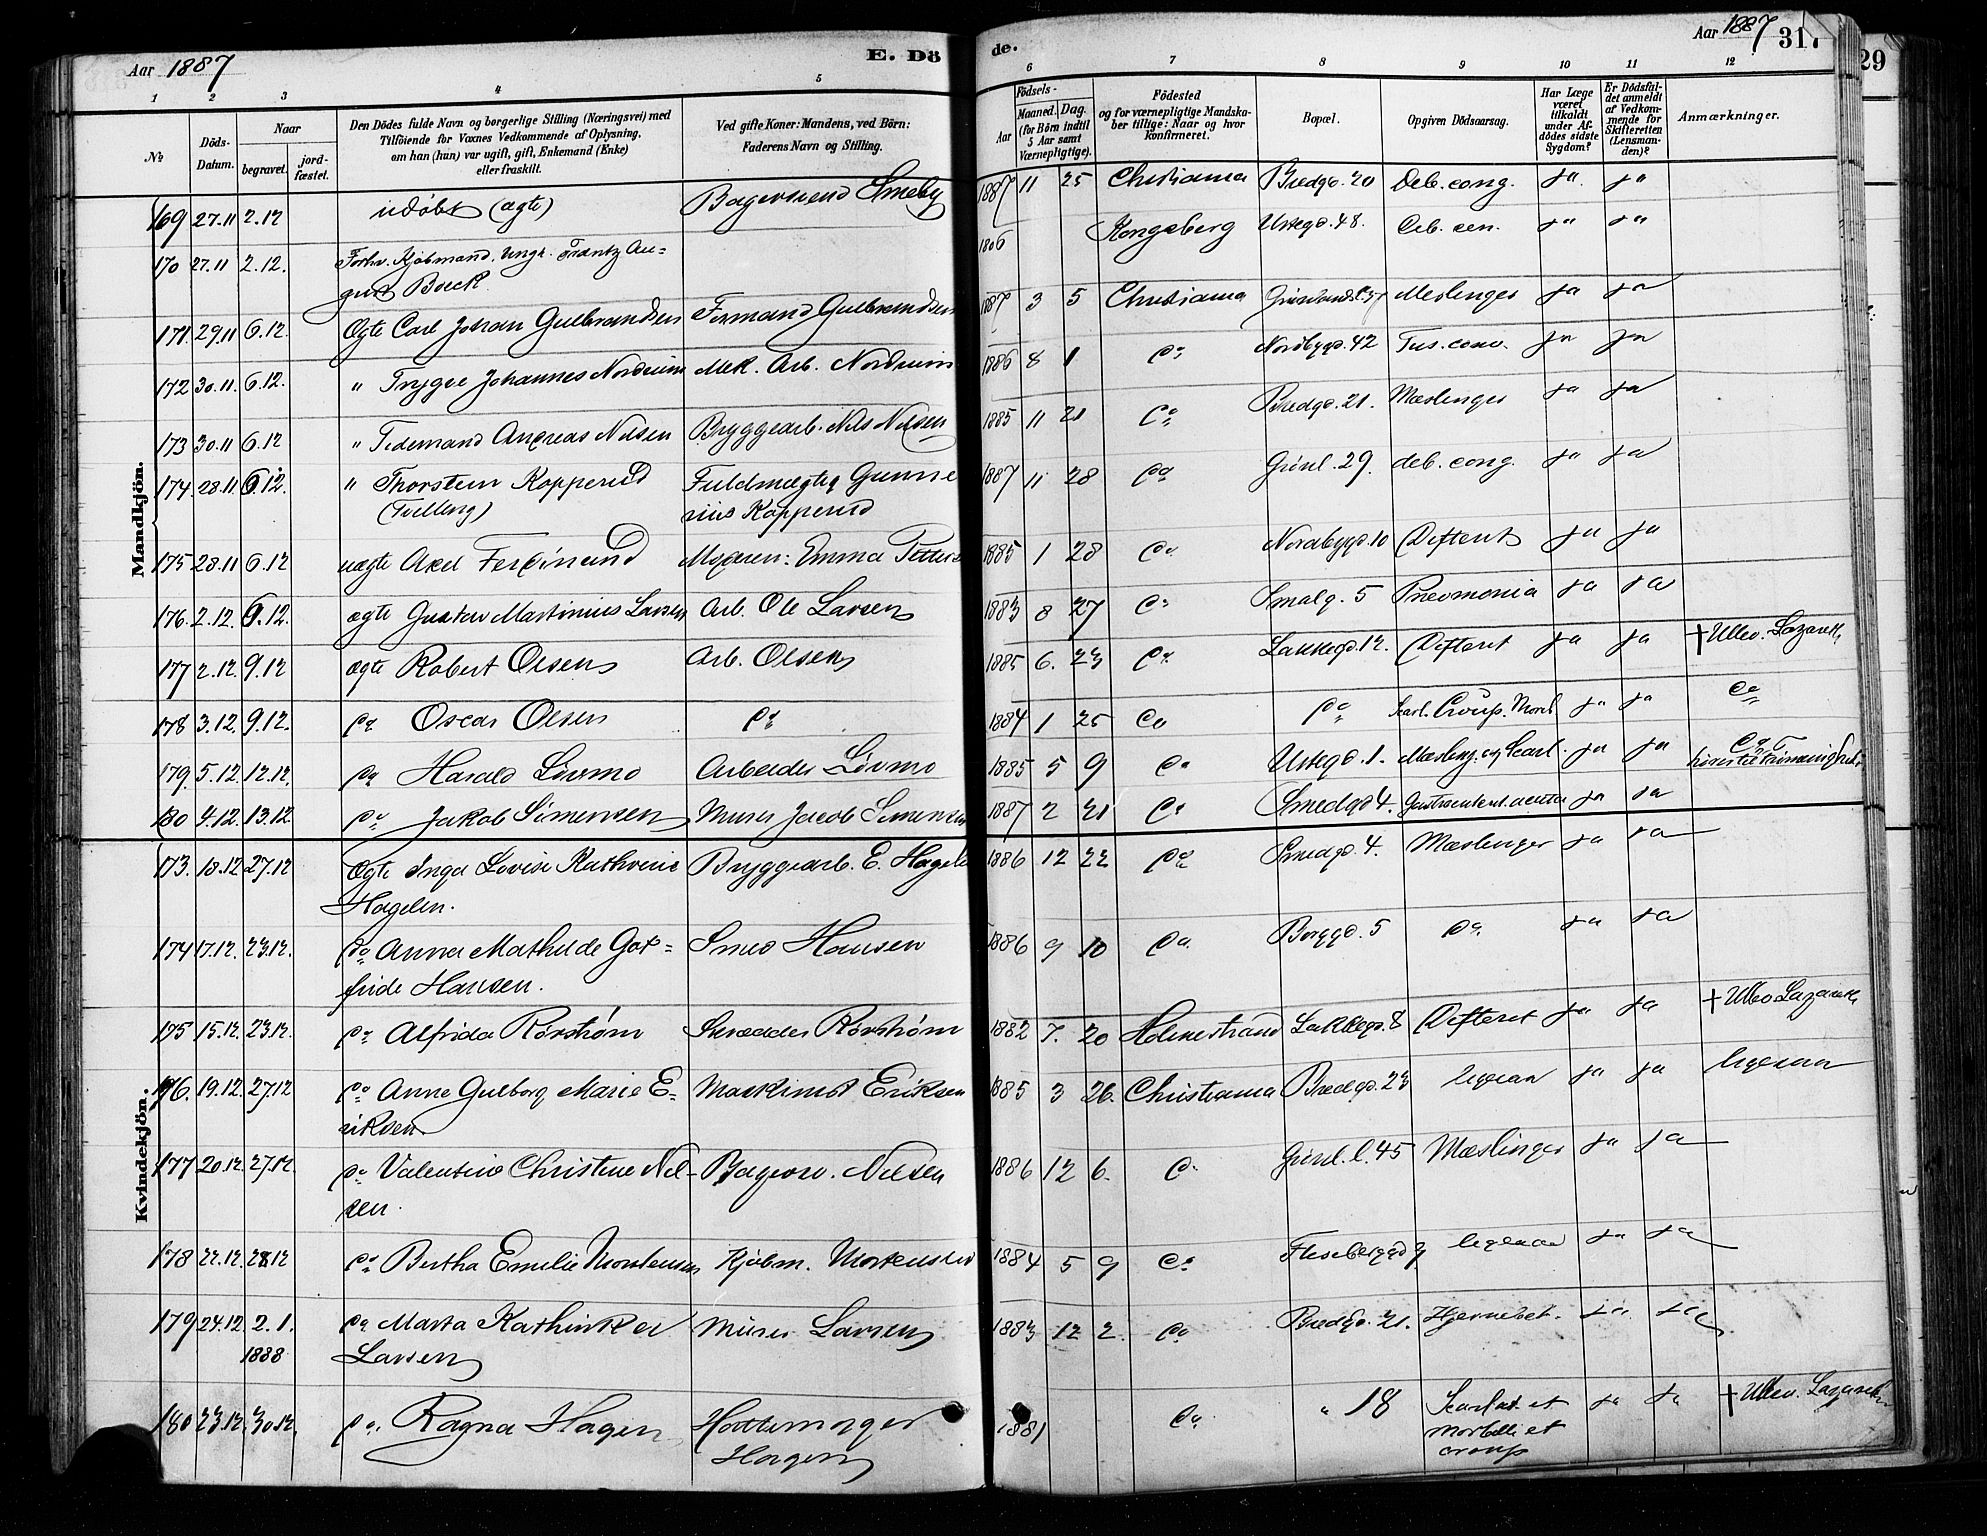 Aar 1887 E. Döde. Aar 1887 317 29
1 2 3 4 5 6 7 8 9 10 11 12
№ Döds-Datum. Naar begravet. jord-fæstet. Den Dödes fulde Navn og borgerlige Stilling (Næringsvei) med Tilföiende for Voxnes Vedkommende af Oplysning, om han (hun) var ugift, gift, Enkemand (Enke) eller fraskilt. Ved gifte Koner: Mandens, ved Börn: Faderens Navn og Stilling. Födsels- Aar Maaned. Dag. (for Börn indtil 5 Aar samt Værnepligtige). Födested og for værnepligtige Mandskaber tillige: Naar og hvor konfirmeret. Bopæl. Opgiven Dödsaarsag. Har Læge været tilkaldt under Afdödes sidste Sygdom? Er Dödsfaldet anmeldt af Vedkommende for Skifteretten (Lensmanden)? Anmærkninger.
Mandkjön.
169 27.11 2.12 udøbt (ægte) Bagersvend Smeby 1887 11 25 Christiania Bredgd. 20 Deb. cong. ja ja
170 27.11 2.12. Forhv. Kjøbmand, Ungk. Frantz Au- 1806 Kongsberg Urtegd. 48. ja ja
gust Boeck
171. 29.11 6.12. Ægte Carl Johan Gulbrandsen Formand Gulbrandsen 1887 3 5 Christiania Grønlandsl. 37 Meslinger ja ja
172 30.11. 6.12. " Trygve Johannes Nordrum Mek. Arb. Nordrum 1886 8 1 do Nordbygd. 42 Tus. conv. ja ja
173 30.11 6.12 " Tidemand Andreas Nilsen Bryggearb. Nils Nilsen 1885 11 21 do Bredgd. 21. Mæslinger ja ja
174. 28.11. 6.12. " Thorstein Kopperud Fuldmægtig Gunne- 1887 11 28 do Grønl. 29. deb. cong. ja ja
(Tvilling) rius Kopperud
175 28.11 6.12 uægte Axel Ferdinand Moderen: Emma Petters 1885 1 28 do Nordbygd. 10 Difterit ja ja
176. 2.12. 6.12. ægte Gustav Martinius Larsen Arb. Ole Larsen 1883 8 27 do Smalg. 5 Pneumonia ja ja
177 2.12 9.12 ægte Robert Olsen Arb. Olsen 1885 6. 23 do Lakkegd. 12. Difterit ja ja † Ullev. Lazareth
178 3.12. 9.12. do Oscar Olsen do 1884 1 25 do do Scarl. Croup. Morb ja ja do
179. 5.12. 12.12. do Harald Lövmo Arbeider Lövmo 1885 5 9 do Urtegd. 1. Mæsling. og Scarl. ja ja do
180 4.12. 13.12 do Jakob Simensen Murer Jacob Simensen 1887 2 21 do Smedgd 4. Gastroenterit. acuta ja ja
Kvindekjön.
173. 18.12 27.12 Ægte Inga Lovise Kathrine Bryggearb. E. Hagelen 1886 12 22 do Smedgd. 4. Mæslinger ja ja
Hagelen.
174 17.12. 23.12. do Anna Mathilde Got- Smed Hansen 1886 9 10 do Borggd. 5 do ja ja
fride Hansen.
175 15.12. 23.12. do Alfrida Rørstrøm Skrædder Rørstrøm 1882 7. 20 Holmestrand Lakkegd. 8 Difterit ja ja † Ullev Lazareth
176. 19.12. 27.12 do Anne Gulborg Marie E- Maskinist Eriksen 1885 3 26. Christiania Bredgd. 23 ligesaa ja ja ligesaa
riksen
177 20.12. 27.12. do Valentine Christine Niel- Bagersv. Nielsen 1886 12 6. do Grønl. l. 45 Mæslinger ja ja
sen.
178 22.12. 28.12 do Bertha Emilie Mortensen Kjøbm. Mortensen 1884 5 9 do ligesaa ja ja
179 24.12. 2.1. do Marta Kathinka Murer Larsen 1883 12 2. do Bredgd. 21. Hjernebet. ja ja
1888 Larsen
180 23.12. 30.12. do Ragna Hagen Hattemager 1881 do " 18 Scarlat. et ja ja † Ullev. Lazareth
Hagen morbilli et
croup